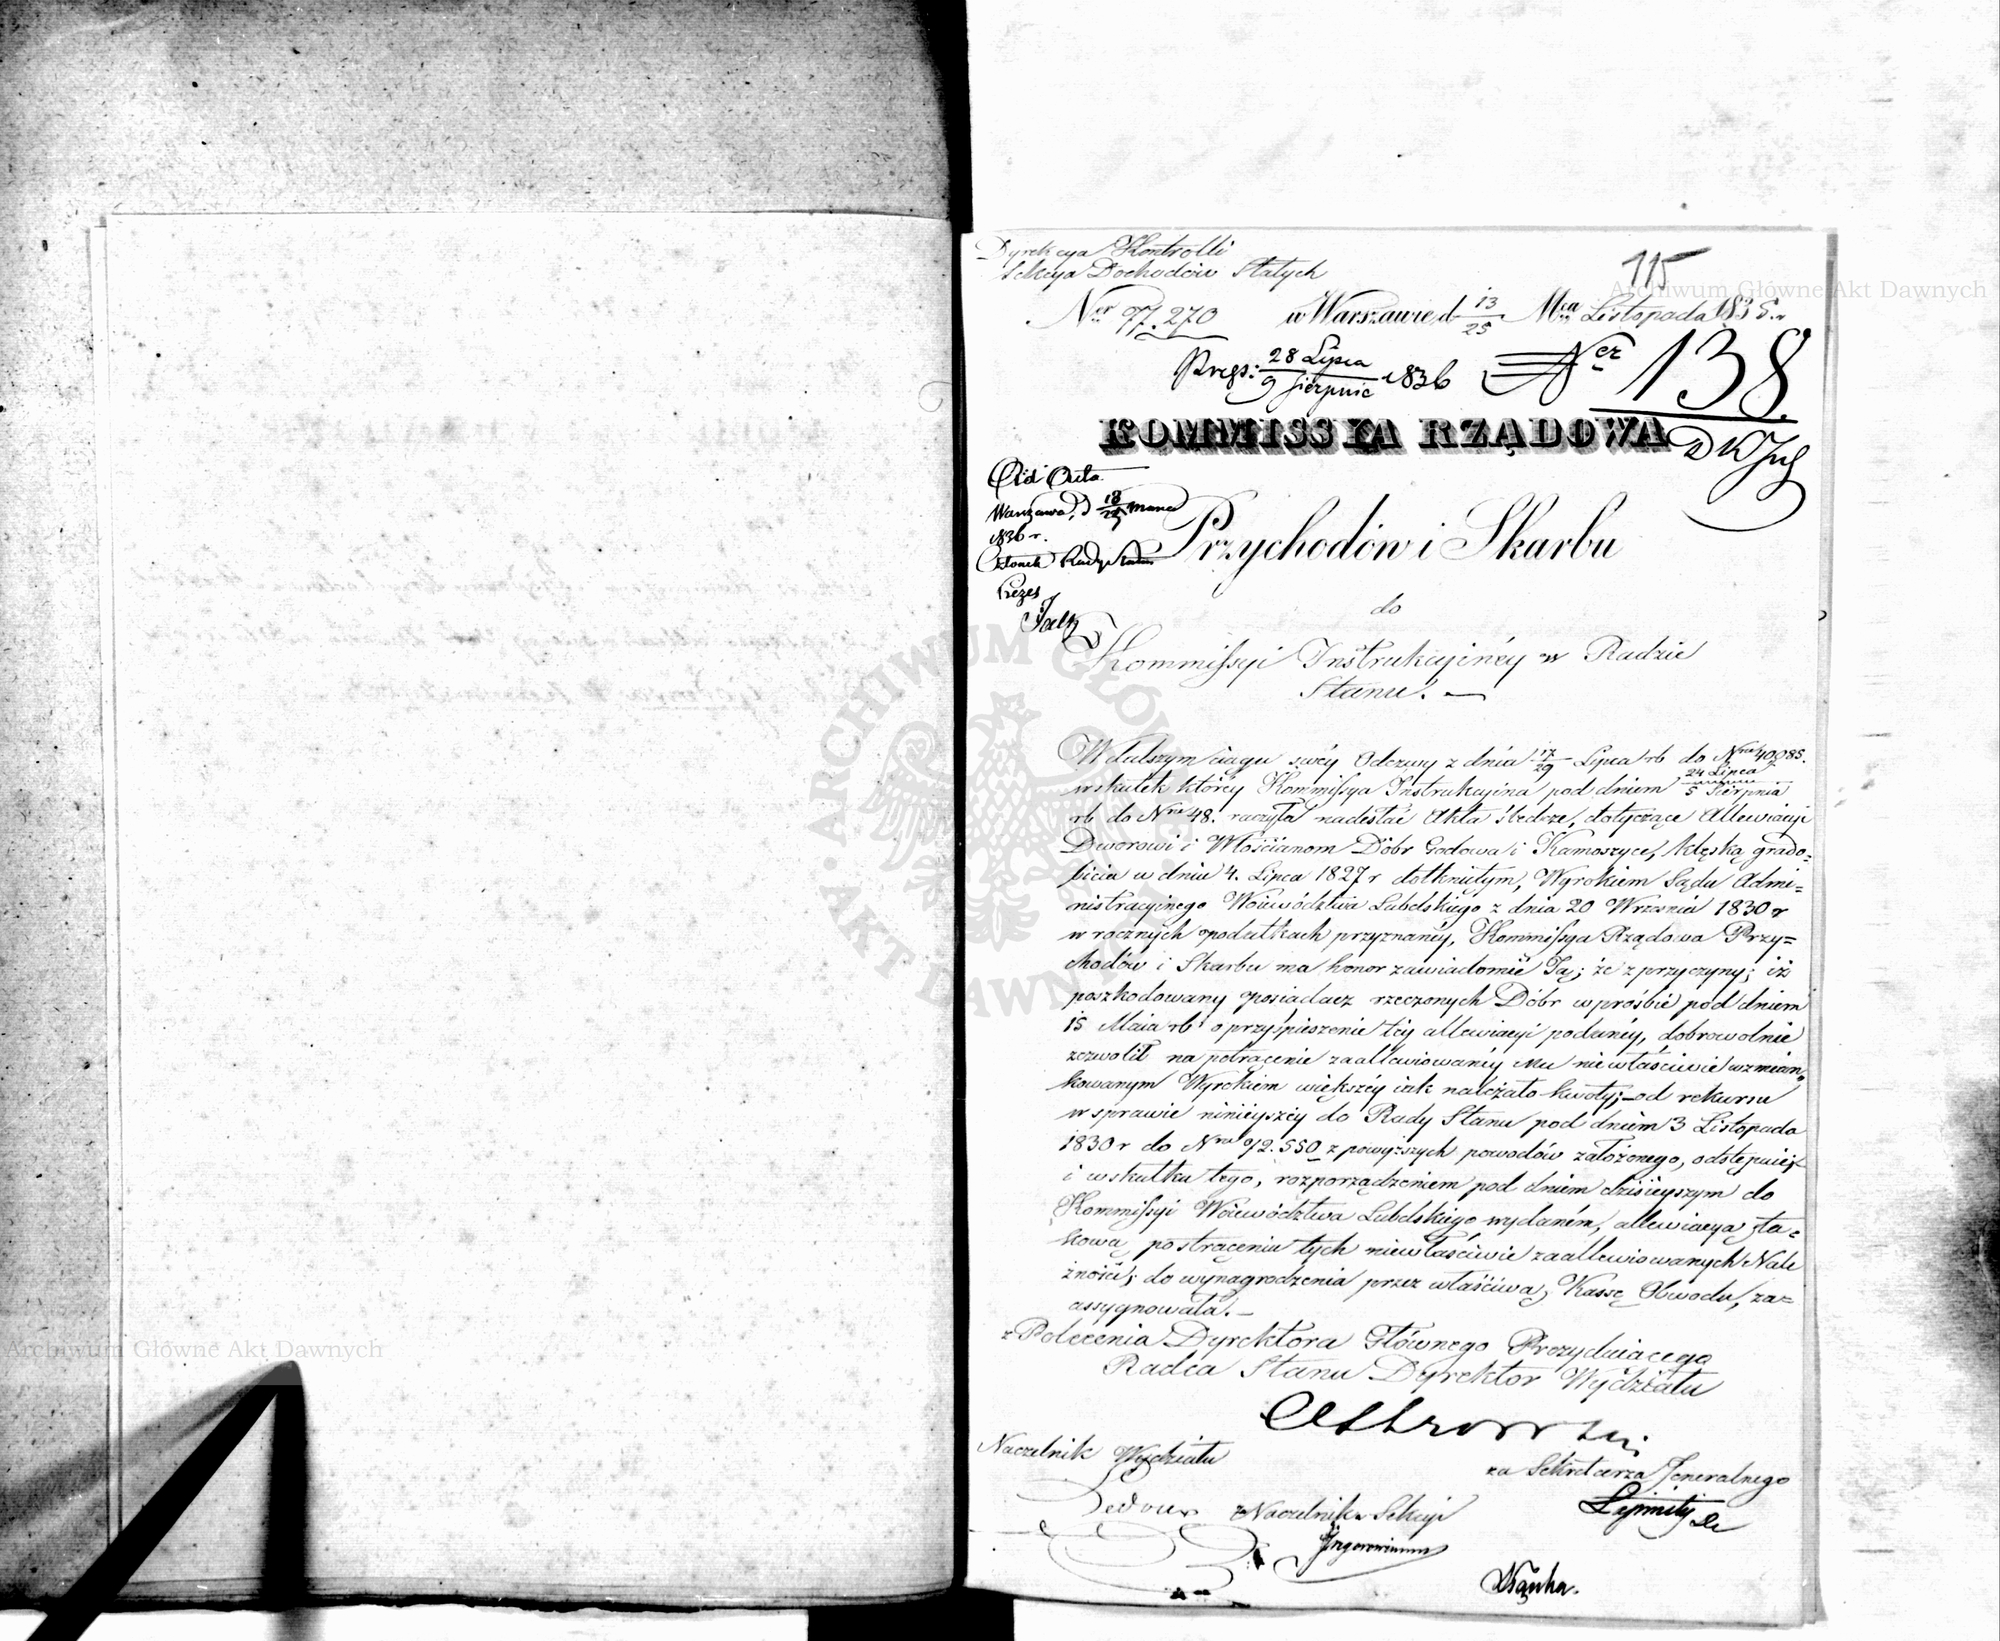 115
Dyrekcya Kontrolli
Sekcya Dochodów Stałych
Ner 97.270 w Warszawie d 13/25 Mca Listopada 1835 r.
Pregs: 28 Lipca/9 Sierpnia 1836 Ner 138.
KOMMISSYA RZĄDOWA
Ad Acta
Warszawa, d Marca
1836 r.
Członek Rady Stanu
Prezes
Przychodów i Skarbu
do
Kommissyi Instrukcyinéy w Radzie
Stanu. —
W dalszym ciągu swéy Odezwy z dnia 17/29 Lipca rb do Nru 40,085.
w skutek któréy Kommissya Instrukcyina pod dniem 24 Lipca/5 Sierpnia
rb do Nru 48. raczyła nadesłać Akta śledcze, dotyczące Allewiacyi
Dworowi i Włościanom Dóbr Godowa i Kamoszyce, klęską grado=
bicia w dniu 4. Lipca 1827 r dotkniętym, Wyrokiem Sądu Admi=
nistracyinego Woiewództwa Lubelskiego z dnia 20 Września 1830 r
w rocznych podatkach przyznanéy, Kommissya Rządowa Przy=
chodów i Skarbu ma honor zawiadomić Ją; że z przyczyny; iż
poszkodowany posiadacz rzeczonych Dóbr w prośbie pod dniem
15 Maia rb o przyśpieszenie téy allewiacyi podanéy, dobrowolnie
zezwolił na potrącenie zaallewiowanéy Mu niewłaściwie wzmian=
kowanym Wyrokiem większéy iak należało kwoty; – od rekursu
w sprawie ninieyszéy do Rady Stanu pod dniem 3 Listopada
1830 r do Nru 92.550 z powyższych powodów założonego, odstępuie,
i w skutku tego, rozporządzeniem pod dniem dzisieyszym do
Kommissyi Woiewództwa Lubelskiego wydaném, allewiacyą ta=
kową po strąceniu tych niewłaściwie zaallewiowanych Nale
żności; do wynagrodzenia przez właściwą Kassę Obwodu, za=
assygnowała. —
z Polecenia Dyrektora Głównego Prezyduiącego
Radca Stanu Dyrektor Wydziału
Naczelnik Wydziału
za Sekretarza Jeneralnego
z Naczelnik Sekcyi
Archiwum Główne Akt Dawnych
Archiwum Główne Akt Dawnych
ARCHIWUM GŁÓWNE AKT DAWNYCH